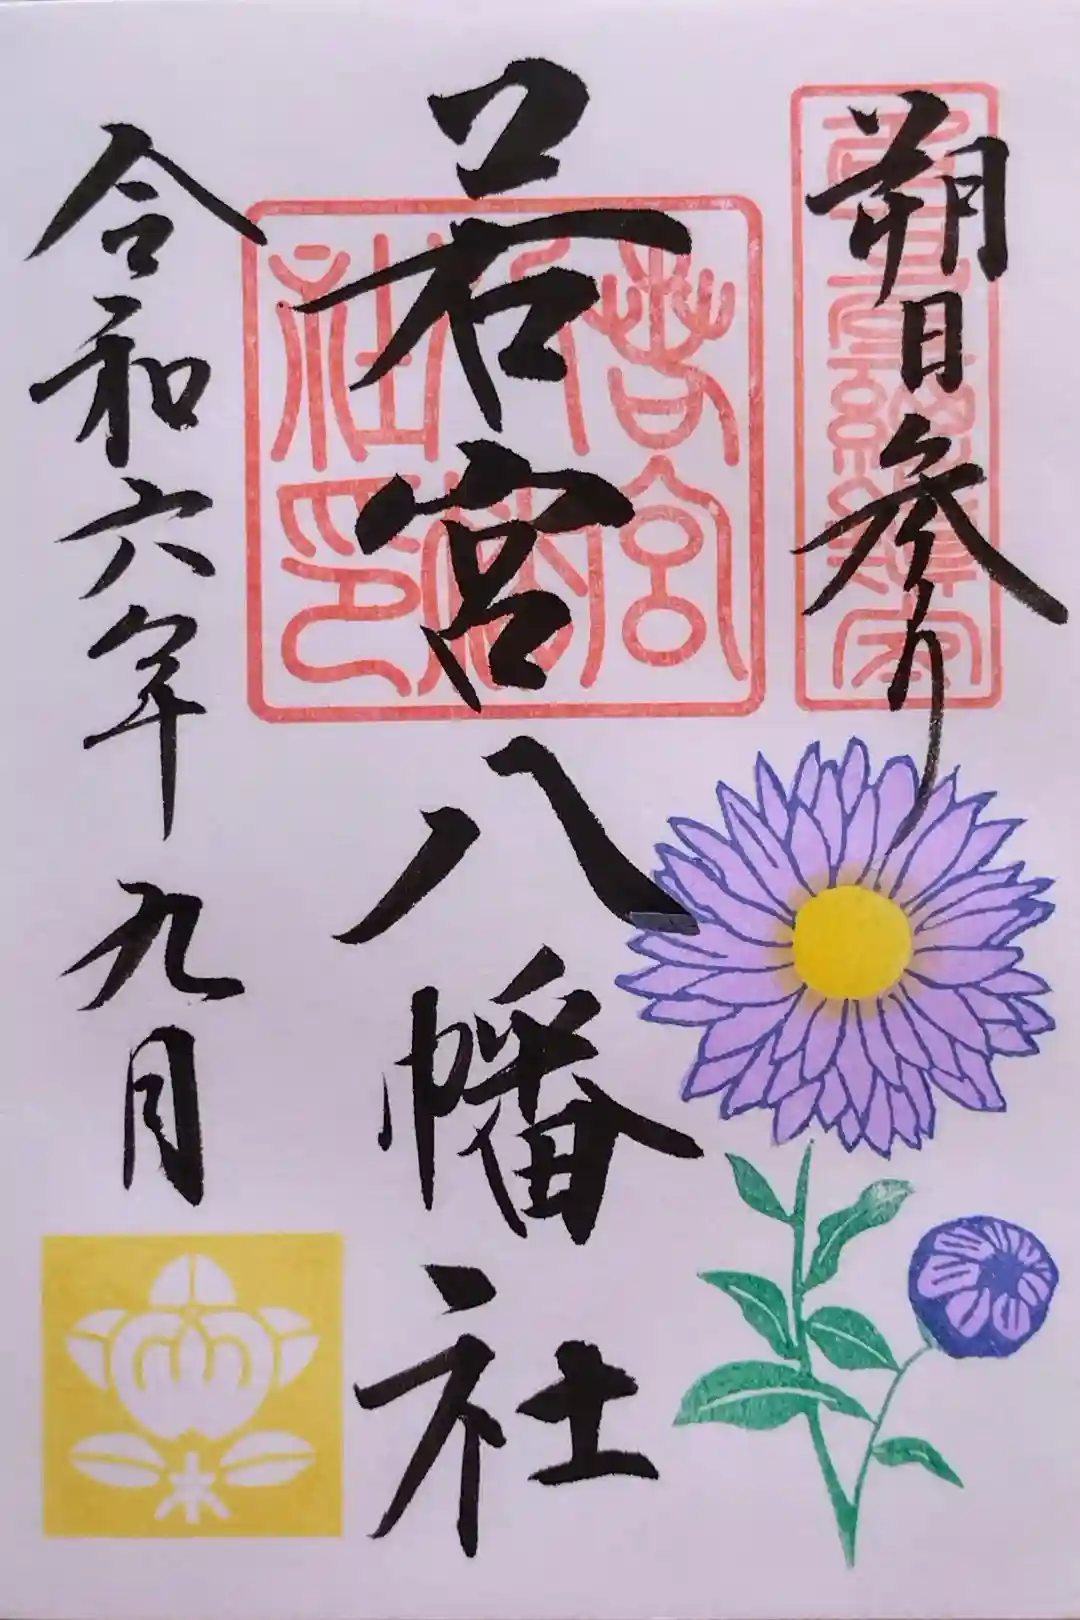 朔日参り
若宮八幡社
令和六年九月
若宮八幡社印